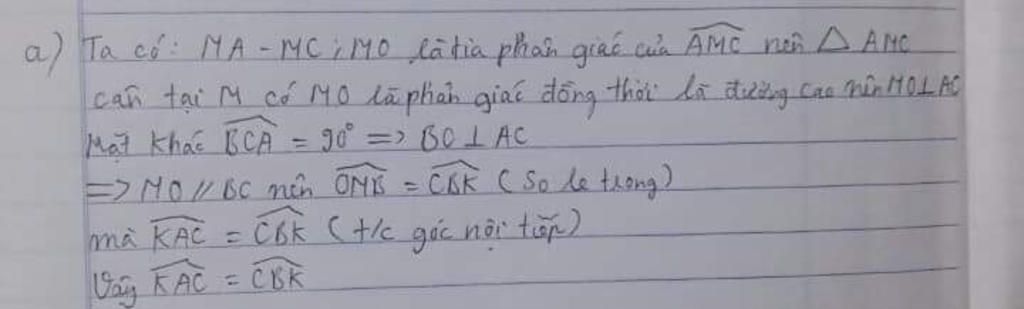 a) Ta có: MA - MC ; MO là tia phân giác của \widehat{AMC} nên △ AMC
cân tại M có MO là phân giác đồng thời là đường cao nên MO⊥AC
Mặt khác \widehat{BCA} = 90° => BC ⊥ AC
=> MO // BC nên \widehat{OMB} = \widehat{CBK} (So le trong)
mà \widehat{KAC} = \widehat{CBK} (t/c góc nội tiếp)
Vậy \widehat{KAC} = \widehat{CBK}